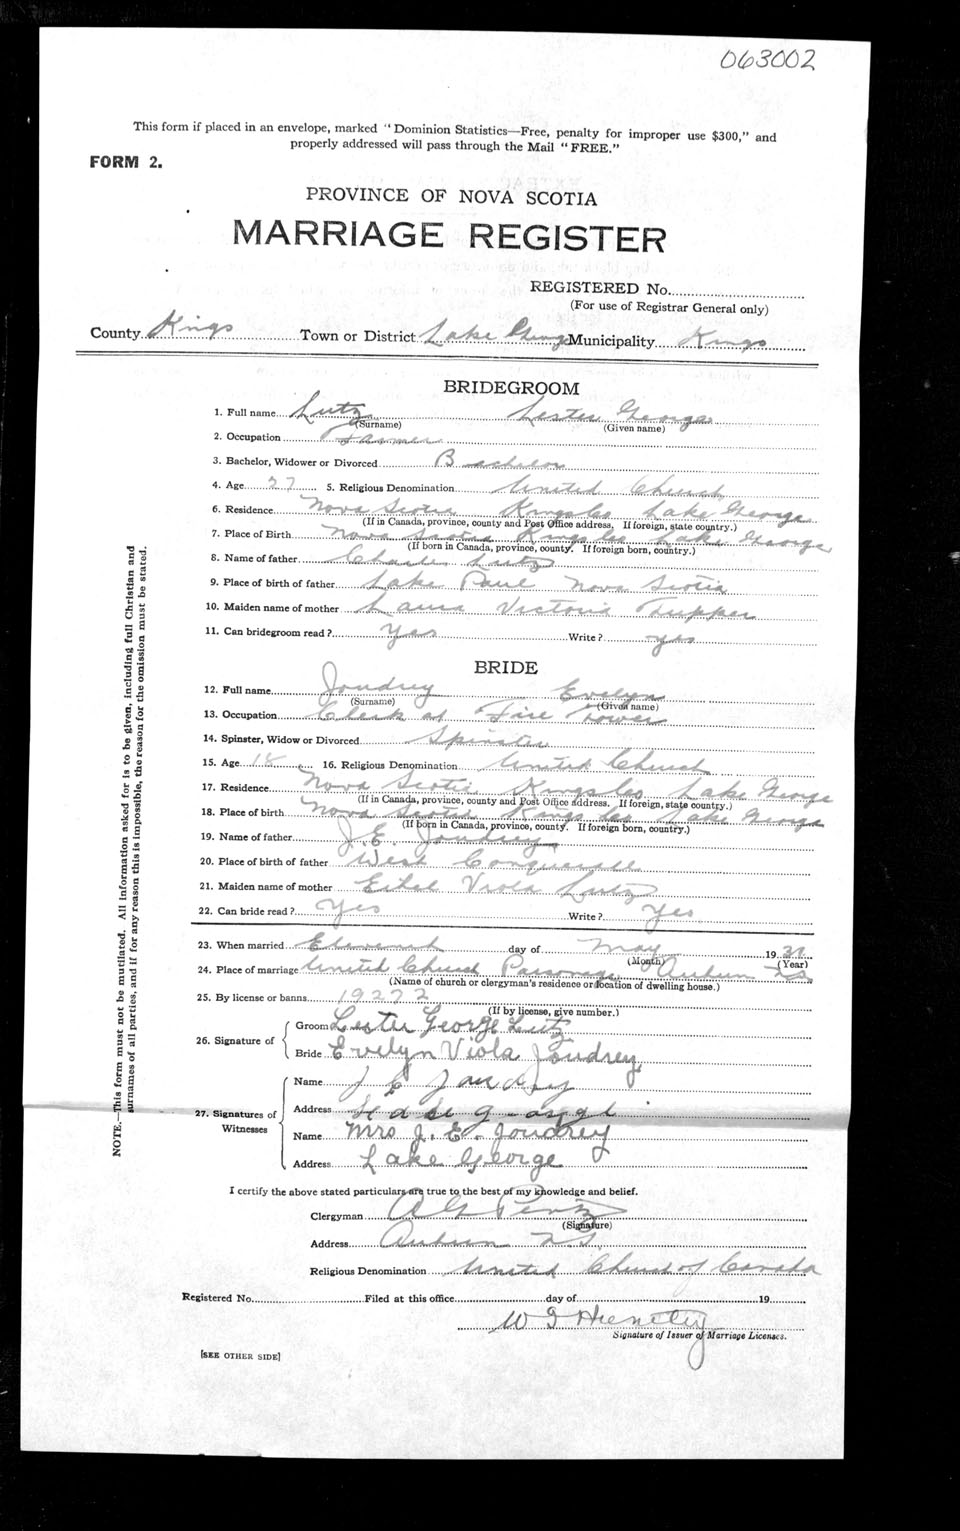 063002
This form if placed in an envelope, marked "Dominion Statistics—Free, penalty for improper use $300," and
properly addressed will pass through the Mail "FREE."
FORM 2.
PROVINCE OF NOVA SCOTIA
MARRIAGE REGISTER
REGISTERED No.
(For use of Registrar General only)
County Kings Town or District Lake George Municipality Kings
BRIDEGROOM
1. Full name Lutz Lester George
(Surname) (Given name)
2. Occupation Farmer
3. Bachelor, Widower or Divorced Bachelor
4. Age 27 5. Religious Denomination United Church
6. Residence Nova Scotia Kings Co Lake George
(If in Canada, province, county and Post Office address. If foreign, state country.)
7. Place of Birth Nova Scotia Kings Co Lake George
(If born in Canada, province, county. If foreign born, country.)
8. Name of father Charles Lutz
9. Place of birth of father Lake Paul Nova Scotia
10. Maiden name of mother Laura Victoria Tupper
11. Can bridegroom read ? Yes Write ? yes
BRIDE
12. Full name Joudrey Evelyn
(Surname) (Given name)
13. Occupation Clerk at Fire Tower
14. Spinster, Widow or Divorced Spinster
15. Age 18 16. Religious Denomination United Church
17. Residence Nova Scotia Kings Co Lake George
(If in Canada, province, county and Post Office address. If foreign, state country.)
18. Place of birth Nova Scotia Kings Co Lake George
(If born in Canada, province, county. If foreign born, country.)
19. Name of father J. E. Joudrey
20. Place of birth of father West Conquerall
21. Maiden name of mother Ethel Viola Lutz
22. Can bride read ? Yes Write ? Yes
23. When married Eleventh day of May 19
(Month) (Year)
24. Place of marriage United Church Parsonage Auburn N.S.
(Name of church or clergyman's residence or location of dwelling house.)
25. By license or banns 19272
(If by license, give number.)
26. Signature of
Groom Lester George Lutz
Bride Evelyn Viola Joudrey
27. Signatures of
Witnesses
Name J E Joudrey
Address
Name Mrs J. E. Joudrey
Address Lake George
I certify the above stated particulars are true to the best of my knowledge and belief.
Clergyman
(Signature)
Address Auburn N.S.
Religious Denomination United Church of Canada
Registered No. Filed at this office day of 19
Signature of Issuer of Marriage Licenses.
[SEE OTHER SIDE]
NOTE.—This form must not be mutilated. All information asked for is to be given, including full Christian and
surnames of all parties, and if for any reason this is impossible, the reason for the omission must be stated.